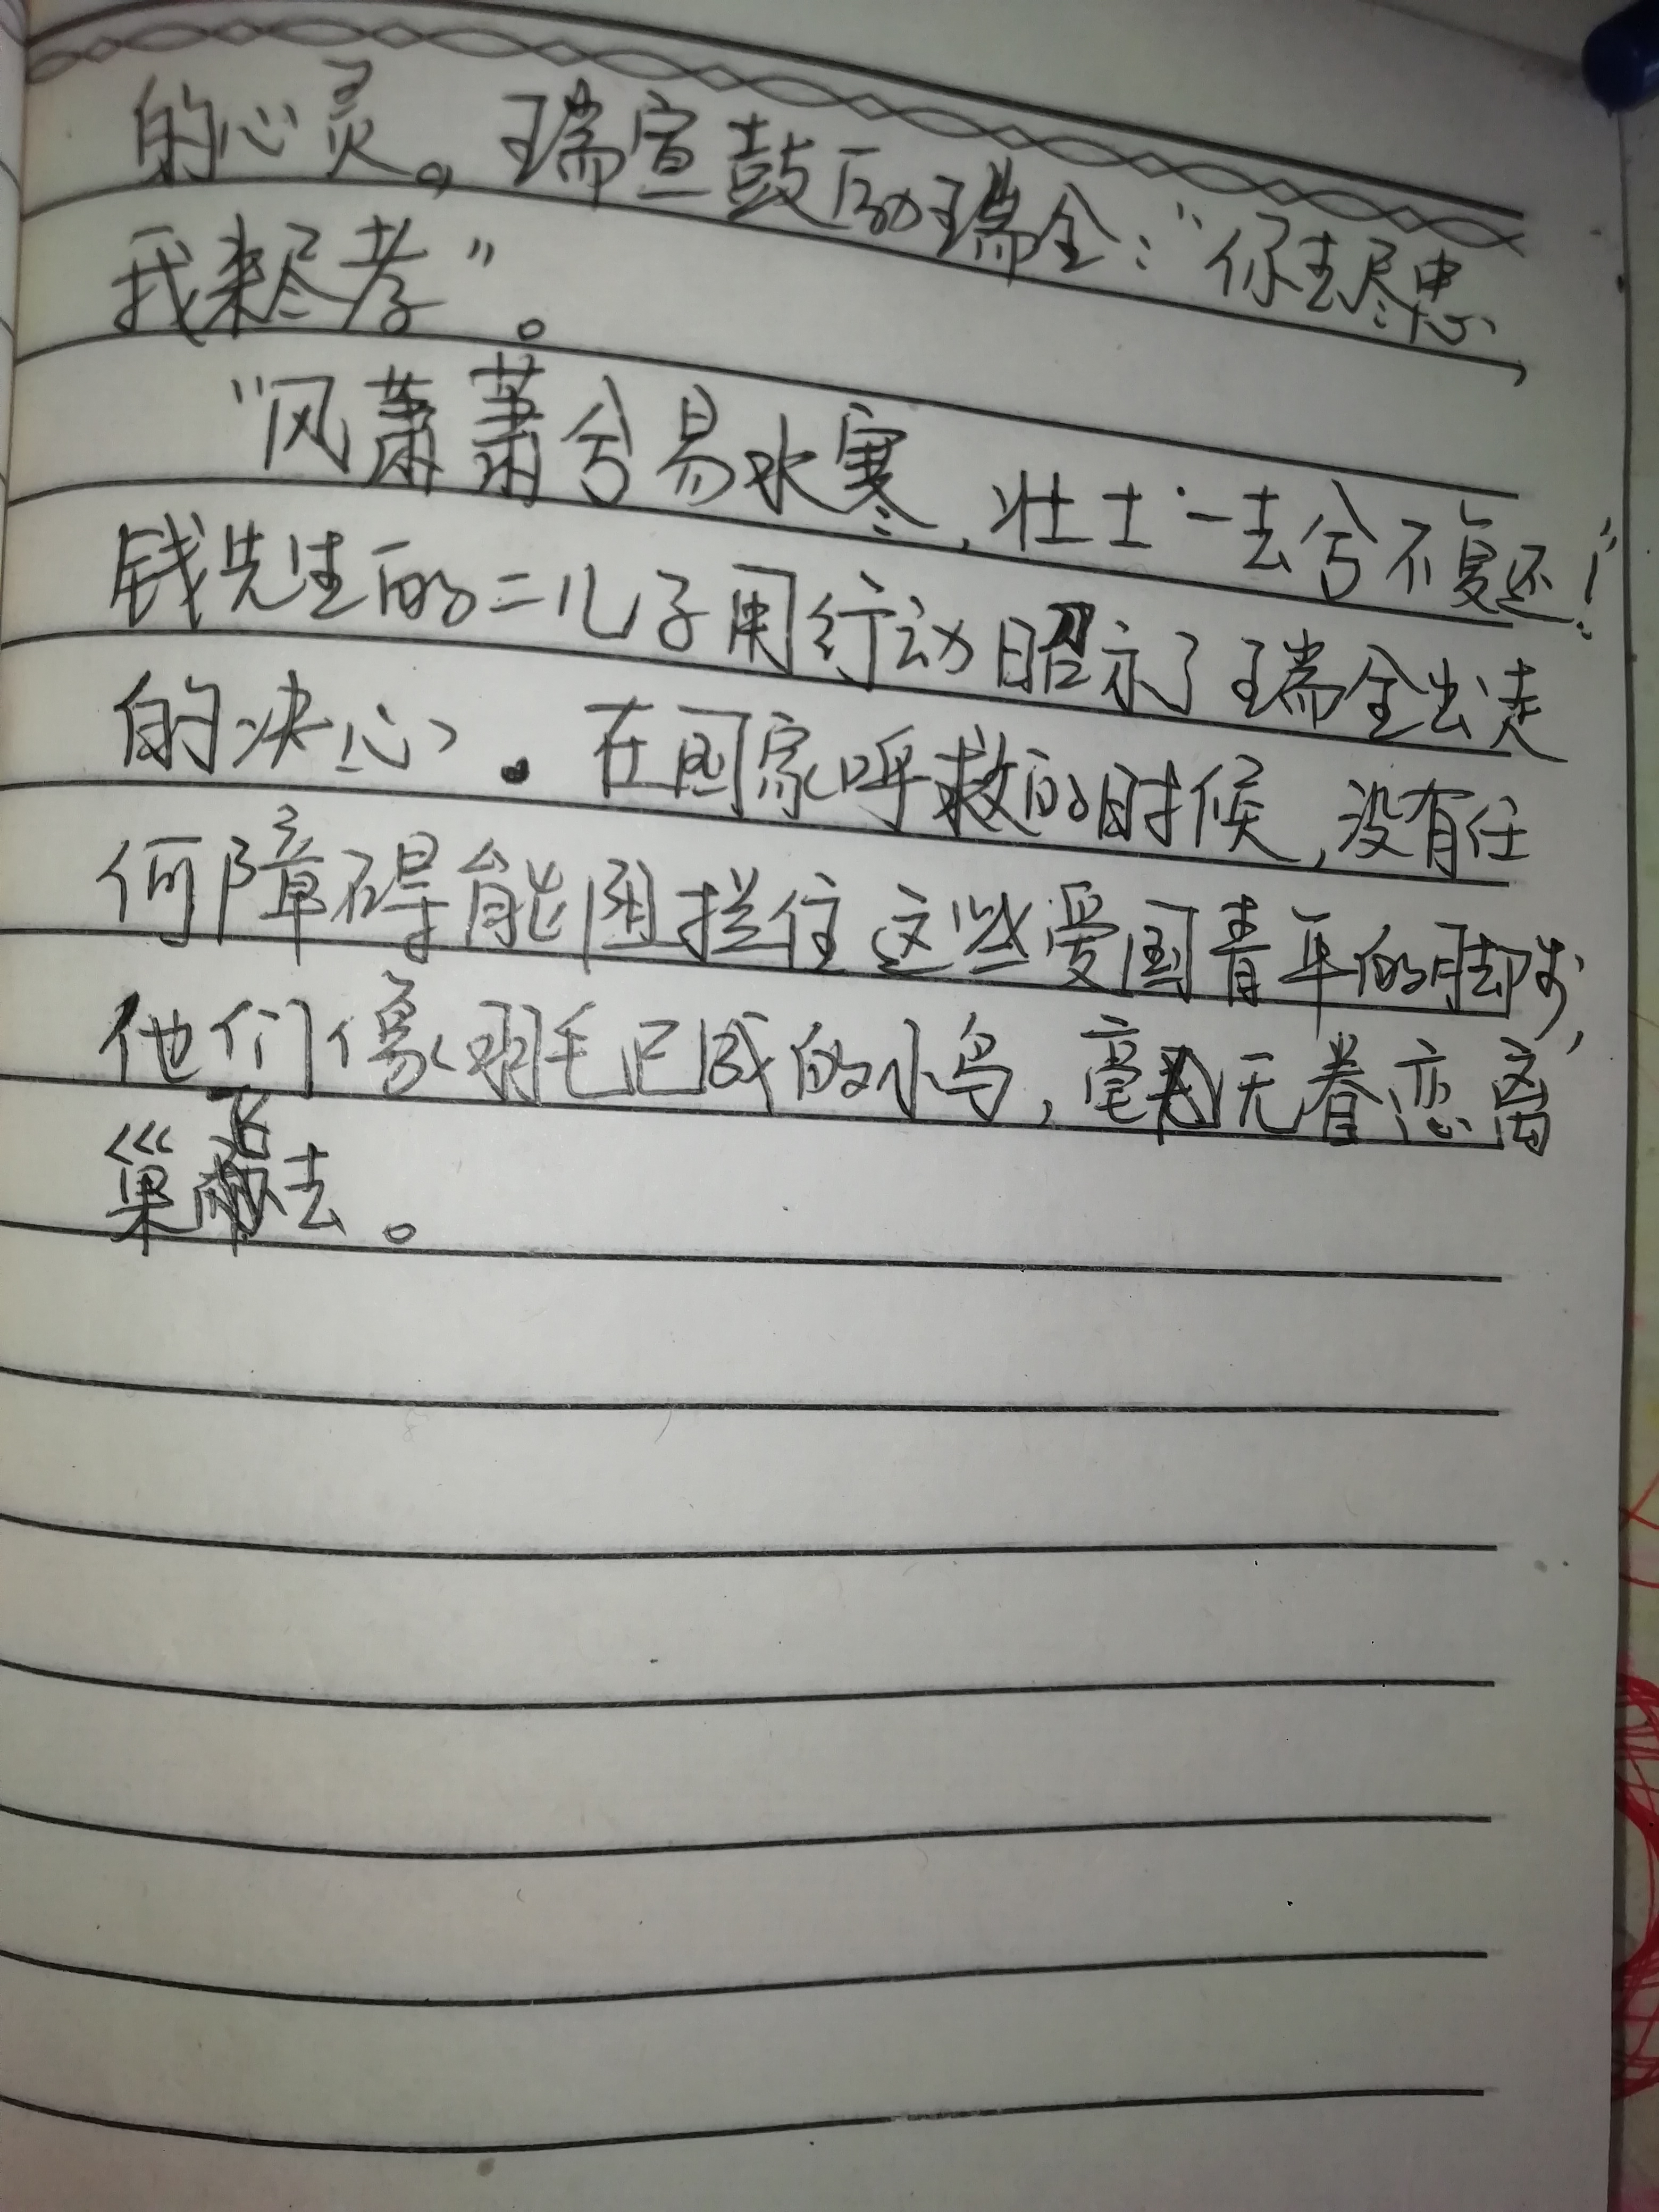 的心灵。瑞宣鼓励瑞全:“你去尽忠,
我来尽孝”。
“风萧萧兮易水寒,壮士一去兮不复还!”
钱先生的二儿子用行动昭示了瑞全出走
的决心。在国家呼救的时候,没有任
何障碍能阻拦住这些爱国青年的脚步,
他们像羽毛已成的小鸟,毫无眷恋离
巢飞去。